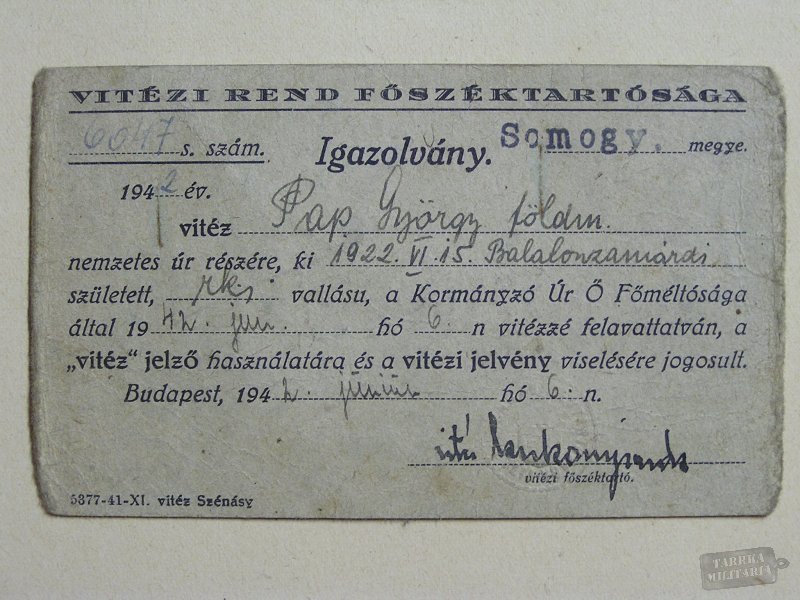 VITÉZI REND FŐSZÉKTARTÓSÁGA
6047 s. szám. Igazolvány. Somogy. megye.
1942 év.
vitéz Pap György földm.
nemzetes úr részére, ki 1922. VI. 15. Balatonzamárdi
született, rk. vallásu, a Kormányzó Úr Ő Főméltósága
által 1942. jun. hó 6. n vitézzé felavattatván, a
„vitéz" jelző használatára és a vitézi jelvény viselésére jogosult.
Budapest, 1942. június hó 6. n.
vitéz
vitézi főszéktartó.
5377-41-XI. vitéz Szénásy
TARRKA MILITARIA